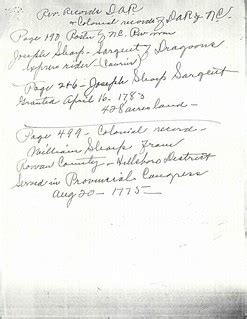 Rev. Records DAR
& Colonial records of DAR of N.C.
Page 190 Roster of N.C. Rev.
Joseph Sharp - Sargeant of Dragoons
express rider
Page 246 - Joseph Sharp Sargeant
Granted April 16, 1783
428 acres land -
Page 499 - Colonial record -
William Sharp from
Rowan County - Hillsboro District
Served in Provincial Congress
Aug 20 - 1775 -